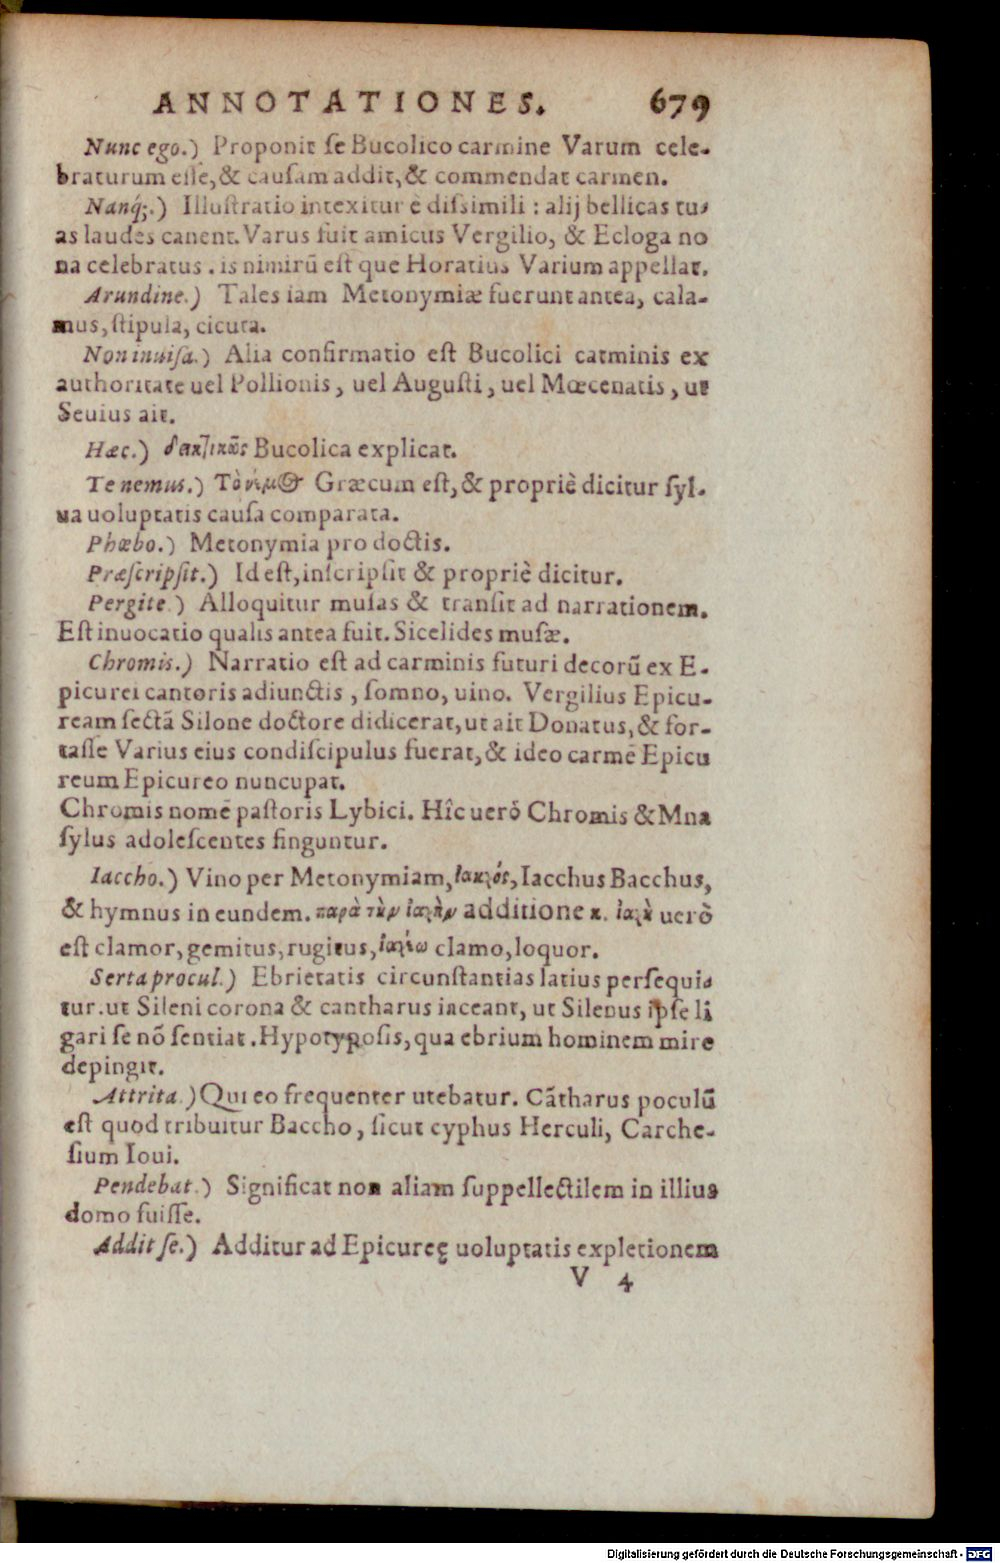 ANNOTATIONES. 679
Nunc ego.) Proponit ſe Bucolico carmine Varum cele-
braturum eſſe, & cauſam addit, & commendat carmen.
Nanq́;.) Illuſtratio intexitur è diſsimili : alij bellicas tu-
as laudes canent. Varus fuit amicus Vergilio, & Ecloga no
na celebratus . is nimirũ eſt que Horatius Varium appellat.
Arundine.) Tales iam Metonymiæ fuerunt antea, cala-
mus, ſtipula, cicuta.
Non inuiſa.) Alia confirmatio eſt Bucolici carminis ex
authoritate uel Pollionis, uel Auguſti, uel Mœcenatis, ut
Seuius ait.
Hæc.) δεικτικῶς Bucolica explicat.
Te nemus.) Τὸ νέμος Græcum eſt, & propriè dicitur ſyl-
ua uoluptatis cauſa comparata.
Phœbo.) Metonymia pro doctis.
Præſcripſit.) Id eſt, inſcripſit & propriè dicitur.
Pergite.) Alloquitur muſas & tranſit ad narrationem.
Eſt inuocatio qualis antea fuit. Sicelides muſæ.
Chromis.) Narratio eſt ad carminis futuri decorũ ex E-
picurei cantoris adiunctis, ſomno, uino. Vergilius Epicu-
ream ſectã Silone doctore didicerat, ut ait Donatus, & for-
taſſe Varius eius condiſcipulus fuerat, & ideo carmẽ Epicu
reum Epicureo nuncupat.
Chromis nomẽ paſtoris Lybici. Hîc uerò Chromis & Mna
ſylus adoleſcentes finguntur.
Iaccho.) Vino per Metonymiam, ἰακχός, Iacchus Bacchus,
& hymnus in eundem. παρὰ τὴν ἰαχὴν additione κ. ἰαχὴ uerò
eſt clamor, gemitus, rugitus, ἰαχέω clamo, loquor.
Serta procul.) Ebrietatis circunſtantias latius perſequi-
tur. ut Sileni corona & cantharus iaceant, ut Silenus ipſe li
gari ſe nõ ſentiat. Hypotypoſis, qua ebrium hominem mire
depingit.
Attrita.) Qui eo frequenter utebatur. Cãtharus poculũ
eſt quod tribuitur Baccho, ſicut cyphus Herculi, Carche-
ſium Ioui.
Pendebat.) Significat non aliam ſuppellectilem in illius
domo fuiſſe.
Addit ſe.) Additur ad Epicureę uoluptatis expletionem
V 4
Digitalisierung gefördert durch die Deutsche Forschungsgemeinschaft - DFG